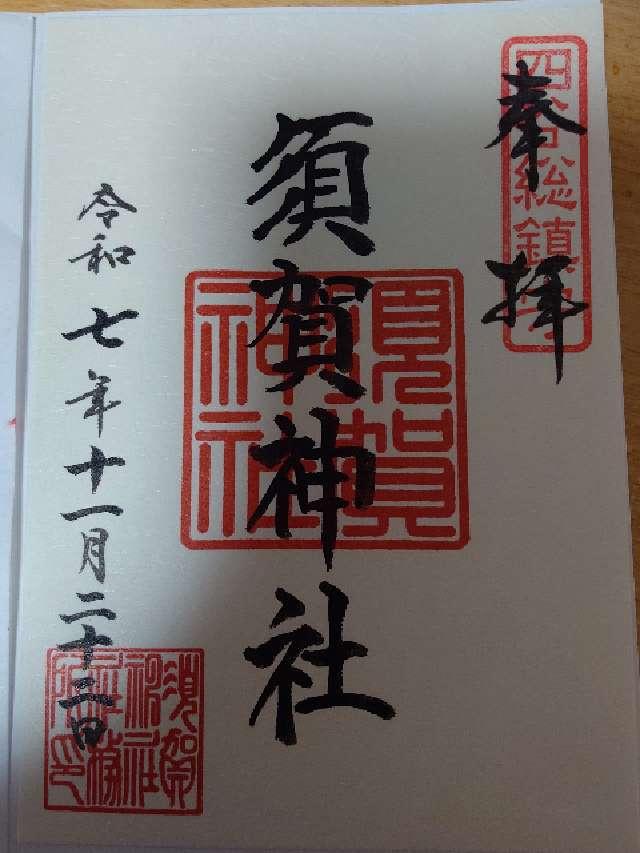 奉拝
四谷総鎮守
須賀神社
須賀神社
令和七年十一月二十二日
須賀神社社務所印